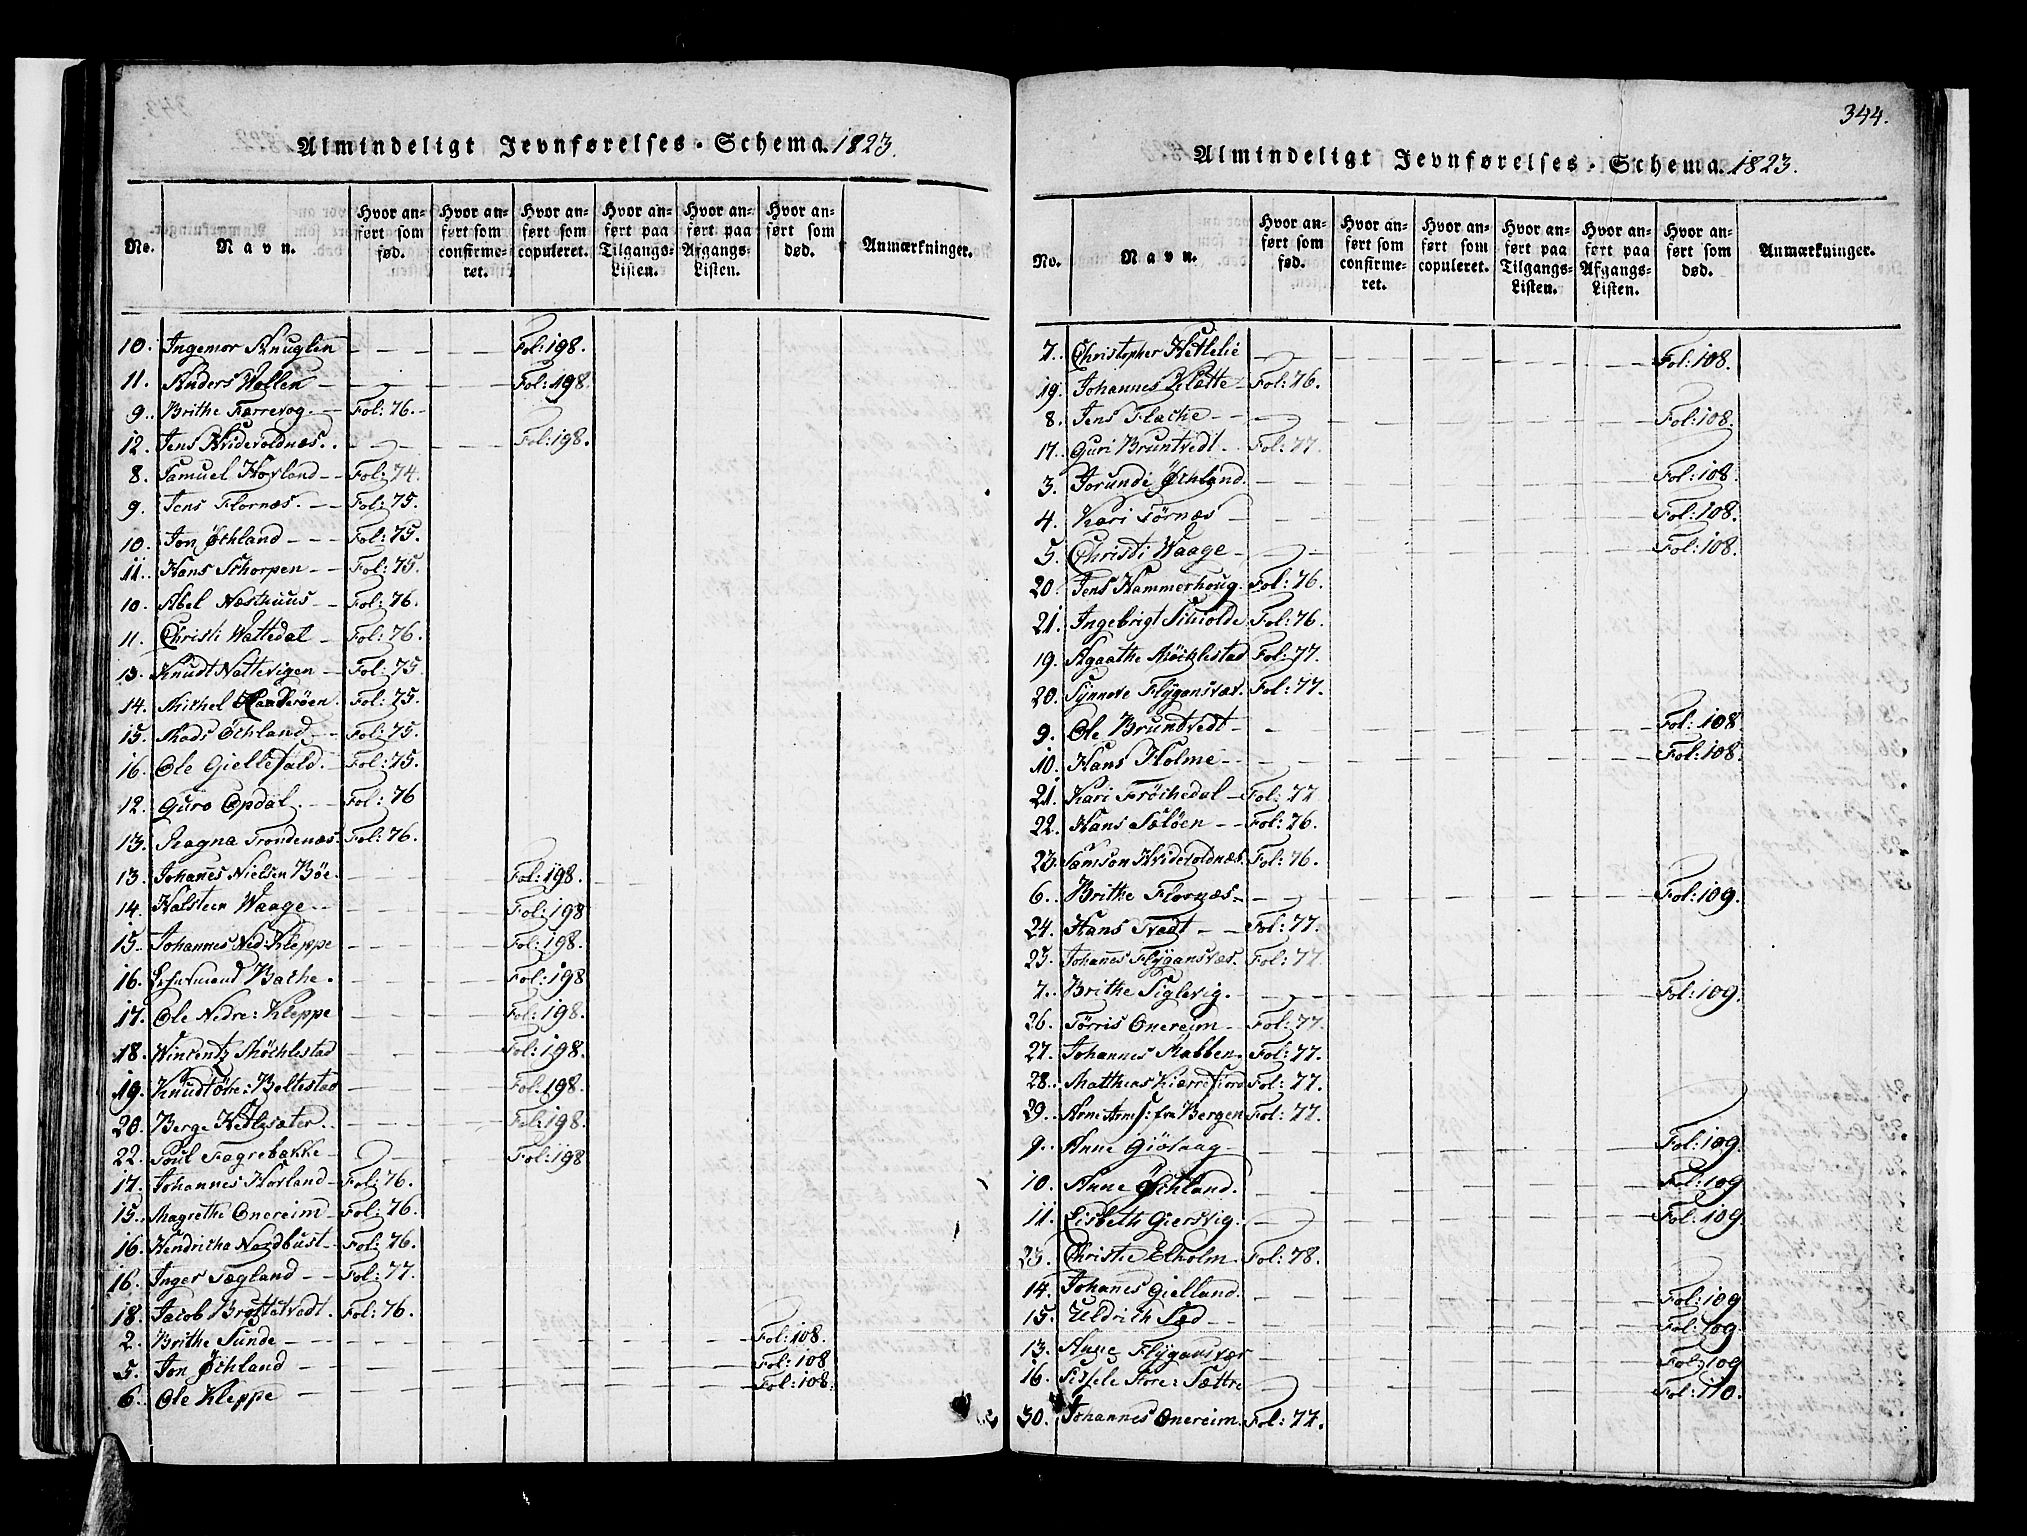 344.
Almindeligt Jevnførelses-Schema. 1823.
No. Navn. Hvor anført som fød. Hvor anført som confirmeret. Hvor anført som copuleret. Hvor anført paa Tilgangs-Listen. Hvor anført paa Afgangs-Listen. Hvor anført som død. Anmærkninger.
10. Ingemor Fol: 198.
11. Anders Wollen Fol: 198.
9. Brithe Færrevog. Fol: 76.
12. Jens Hvidevoldnæs. Fol: 198.
8. Samuel Hovland Fol: 74.
9. Jens Flornæs. Fol: 75.
10. Jon Øchland Fol: 75.
11. Hans Schorpen Fol: 75.
10. Abel Næsthuus Fol: 76.
11. Christi Wattedal Fol: 76.
13. Knudt Nattevigen Fol: 75.
14. Michel Fol: 75.
15. Mads Øchland Fol: 75.
16. Ole Giellefald. Fol: 75.
12. Guro Opdal. Fol: 76
13. Ragna Trondenæs. Fol: 76.
13. Johanes Nielsen Böe. Fol: 198.
14. Halsteen Waage Fol: 198
15. Johannes Ned: Kleppe Fol: 198.
16. Bache. Fol: 198
17. Ole Nedre: Kleppe Fol: 198.
18. Wincentz Möchlestad Fol: 198.
19. Knudt Øvre: Beltestad Fol: 198.
20. Berge Hetlesæter. Fol: 198
22. Poul Fagrebække Fol: 198
17. Johannes Hovland Fol: 76.
15. Magrethe Onereim Fol: 76.
16. Hendricha Nordhust Fol: 76.
16. Inger Tegland Fol: 77.
18. Jacob Brattetvedt. Fol: 76.
2. Brithe Sunde Fol: 108.
5. Jon Øchland Fol: 108
6. Ole Kleppe Fol: 108.
Almindeligt Jevnførelses-Schema. 1823.
No. Navn. Hvor anført som fød. Hvor anført som confirmeret. Hvor anført som copuleret. Hvor anført paa Tilgangs-Listen. Hvor anført paa Afgangs-Listen. Hvor anført som død. Anmærkninger.
7. Christopher Hetlelie Fol: 108.
19. Johannes Klætte Fol: 76.
8. Jens Flache Fol: 108.
17. Guri Bruntvedt. Fol: 77.
3. Jorunde Øchland. Fol: 108.
4. Kari Törnæs Fol: 108.
5. Christi Waage Fol: 108.
20. Jens Hammerhoug. Fol: 76.
21. Ingebrigt Fol: 76.
19. Agaathe Möchlestad Fol: 77.
20. Synneve Flygansvær. Fol: 77.
9. Ole Brundtvedt Fol: 108
10. Hans Holme Fol: 108.
21. Kari Fröchedal Fol: 77
22. Hans Sælöen Fol: 76.
23. Samson Hvidevoldnæs. Fol: 76.
6. Brithe Flornæs Fol: 109.
24. Hans Tvedt Fol: 77.
25. Johanes Flygansvær. Fol: 77.
7. Brithe Siglevig. Fol: 109.
26. Törris Onereim Fol: 77.
27. Johannes Mabben. Fol: 77.
28. Matthias Kierrefiord Fol: 77.
29. Arne fra Bergen Fol: 77.
9. Anne Giölaag Fol: 109.
10. Anne Øchland. Fol: 109
11. Lisbeth Giersvig. Fol: 109.
23. Christie Elholm Fol: 78.
14. Johanes Gielland. Fol: 109
15. Uldrich Sæd Fol: 109.
13. Anne Flygansvær Fol: 109
16. Sidsele Store: Sættre Fol: 110.
30. Johannes Onereim. Fol: 77.